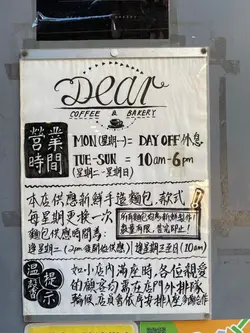 Dear
COFFEE & BAKERY
營業時間
MON (星期一) = DAY OFF 休息
TUE-SUN = 10am-6pm
(星期二-星期日)
本店供應新鮮手造麵包,款式
每星期更換一次
所有麵包均為新鮮製作!
數量有限,售完即止!
麵包供應時間為:
逢星期二 (2pm後開始供應)
逢星期三至日 (10am)
溫馨提示
如小店內滿座時,各位親愛
的顧客勿需在店門外排隊
輪候,店員會依序安排入座,多謝合作